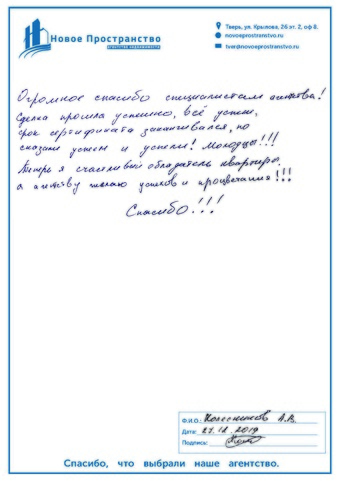 Новое Пространство
АГЕНТСТВО НЕДВИЖИМОСТИ
Тверь, ул. Крылова, 26 эт. 2, оф 8.
novoeprostranstvo.ru
tver@novoeprostranstvo.ru
Огромное спасибо специалистам агентства!
Сделка прошла успешно, всё успели,
срок сертификата заканчивался, но
сказали успеем и успели! Молодцы!!!
Теперь я счастливый обладатель квартиры.
а агентству желаю успехов и процветания!!!
Спасибо!!!
Ф.И.О.: Колесников А.В.
Дата: 27.12.2019
Подпись:
Спасибо, что выбрали наше агентство.